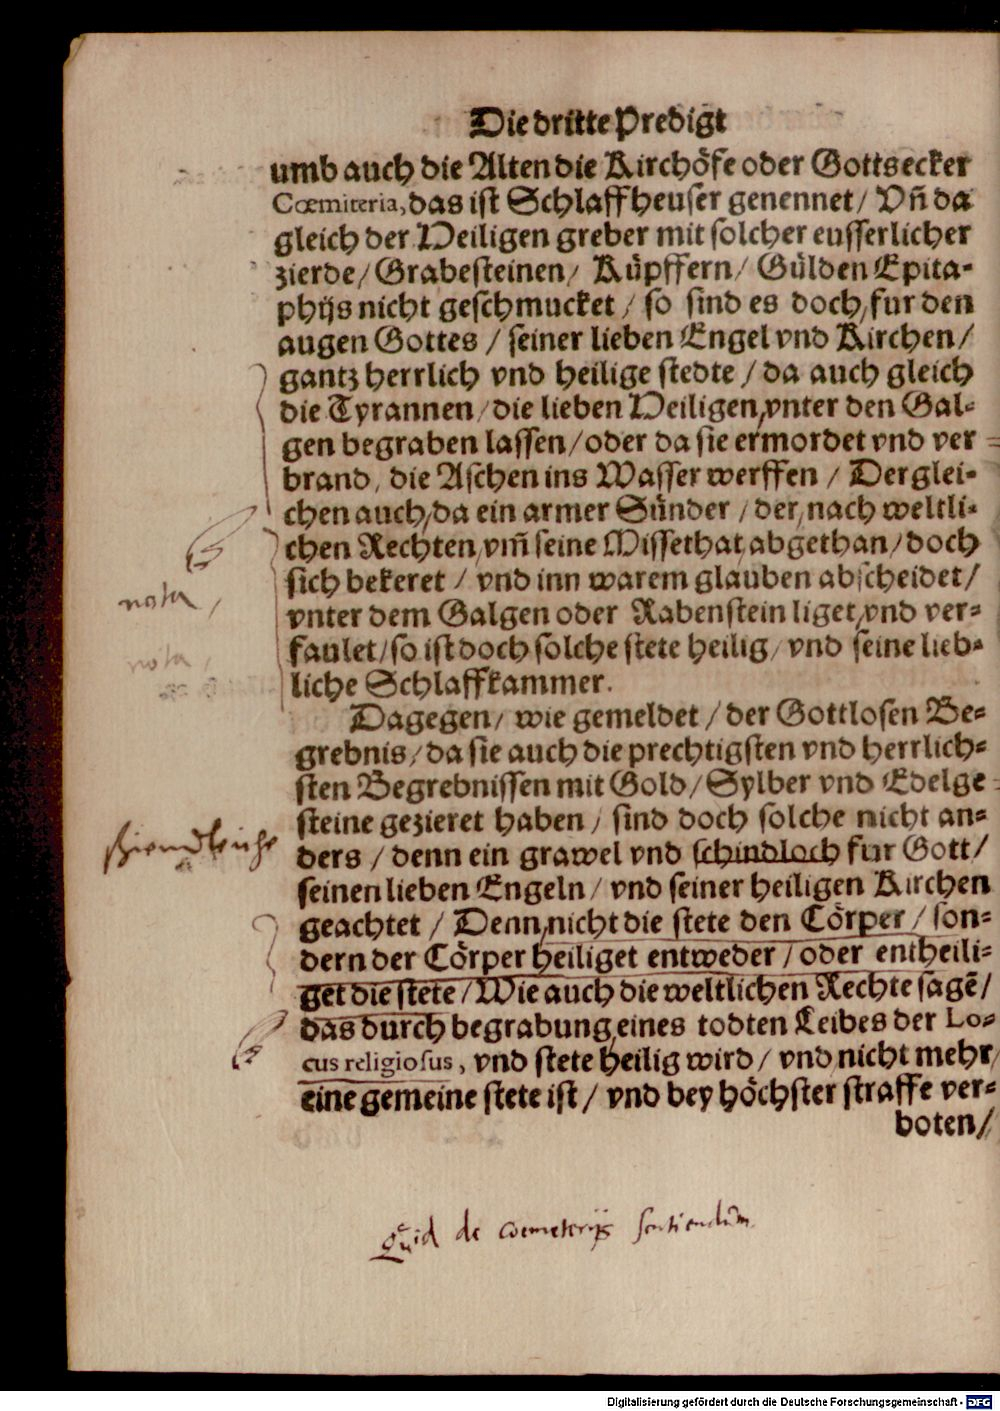 Die dritte Predigt
umb auch die Alten die Kirchöfe oder Gottsecker
Cœmiteria, das ist Schlaffheuser genennet / Vñ da
gleich der Heiligen greber mit solcher eusserlicher
zierde / Grabesteinen / Küpffern / Gülden Epita-
phijs nicht geschmucket / so sind es doch, fur den
augen Gottes / seiner lieben Engel vnd Kirchen /
gantz herrlich vnd heilige stedte / da auch gleich
die Tyrannen / die lieben Heiligen, vnter den Gal-
gen begraben lassen / oder da sie ermordet vnd ver
brand, die Aschen ins Wasser werffen / Derglei-
chen auch, da ein armer Sünder / der, nach weltli-
chen Rechten, vm̃ seine Missethat, abgethan / doch
sich bekeret / vnd inn warem glauben abscheidet /
nota,
vnter dem Galgen oder Rabenstein liget, vnd ver-
faulet / so ist doch solche stete heilig / vnd seine lieb-
nota,
liche Schlaffkammer.
Dagegen / wie gemeldet / der Gottlosen Be-
grebnis / da sie auch die prechtigsten vnd herrlich-
sten Begrebnissen mit Gold / Sylber vnd Edelge
steine gezieret haben / sind doch solche nicht an-
ders / denn ein grawel vnd schindloch fur Gott /
seinen lieben Engeln / vnd seiner heiligen Kirchen
geachtet / Denn, nicht die stete den Cörper / son-
dern der Cörper heiliget entweder / oder entheili-
get die stete / Wie auch die weltlichen Rechte sagẽ /
das durch begrabung, eines todten Leibes der Lo-
cus religiosus, vnd stete heilig wird / vnd, nicht mehr,
eine gemeine stete ist / vnd bey höchster straffe ver-
boten /
Quid de coemeterijs sentiendum.
Digitalisierung gefördert durch die Deutsche Forschungsgemeinschaft - DFG